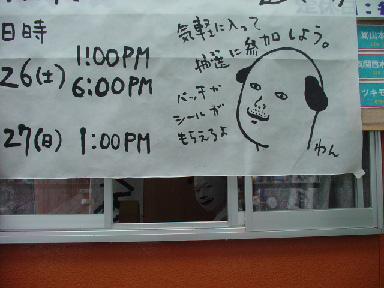 日時
26(土) 1:00PM
6:00PM
27(日) 1:00PM
気軽に入って
抽選に参加しよう。
バッチか
シールが
もらえるよ
わん